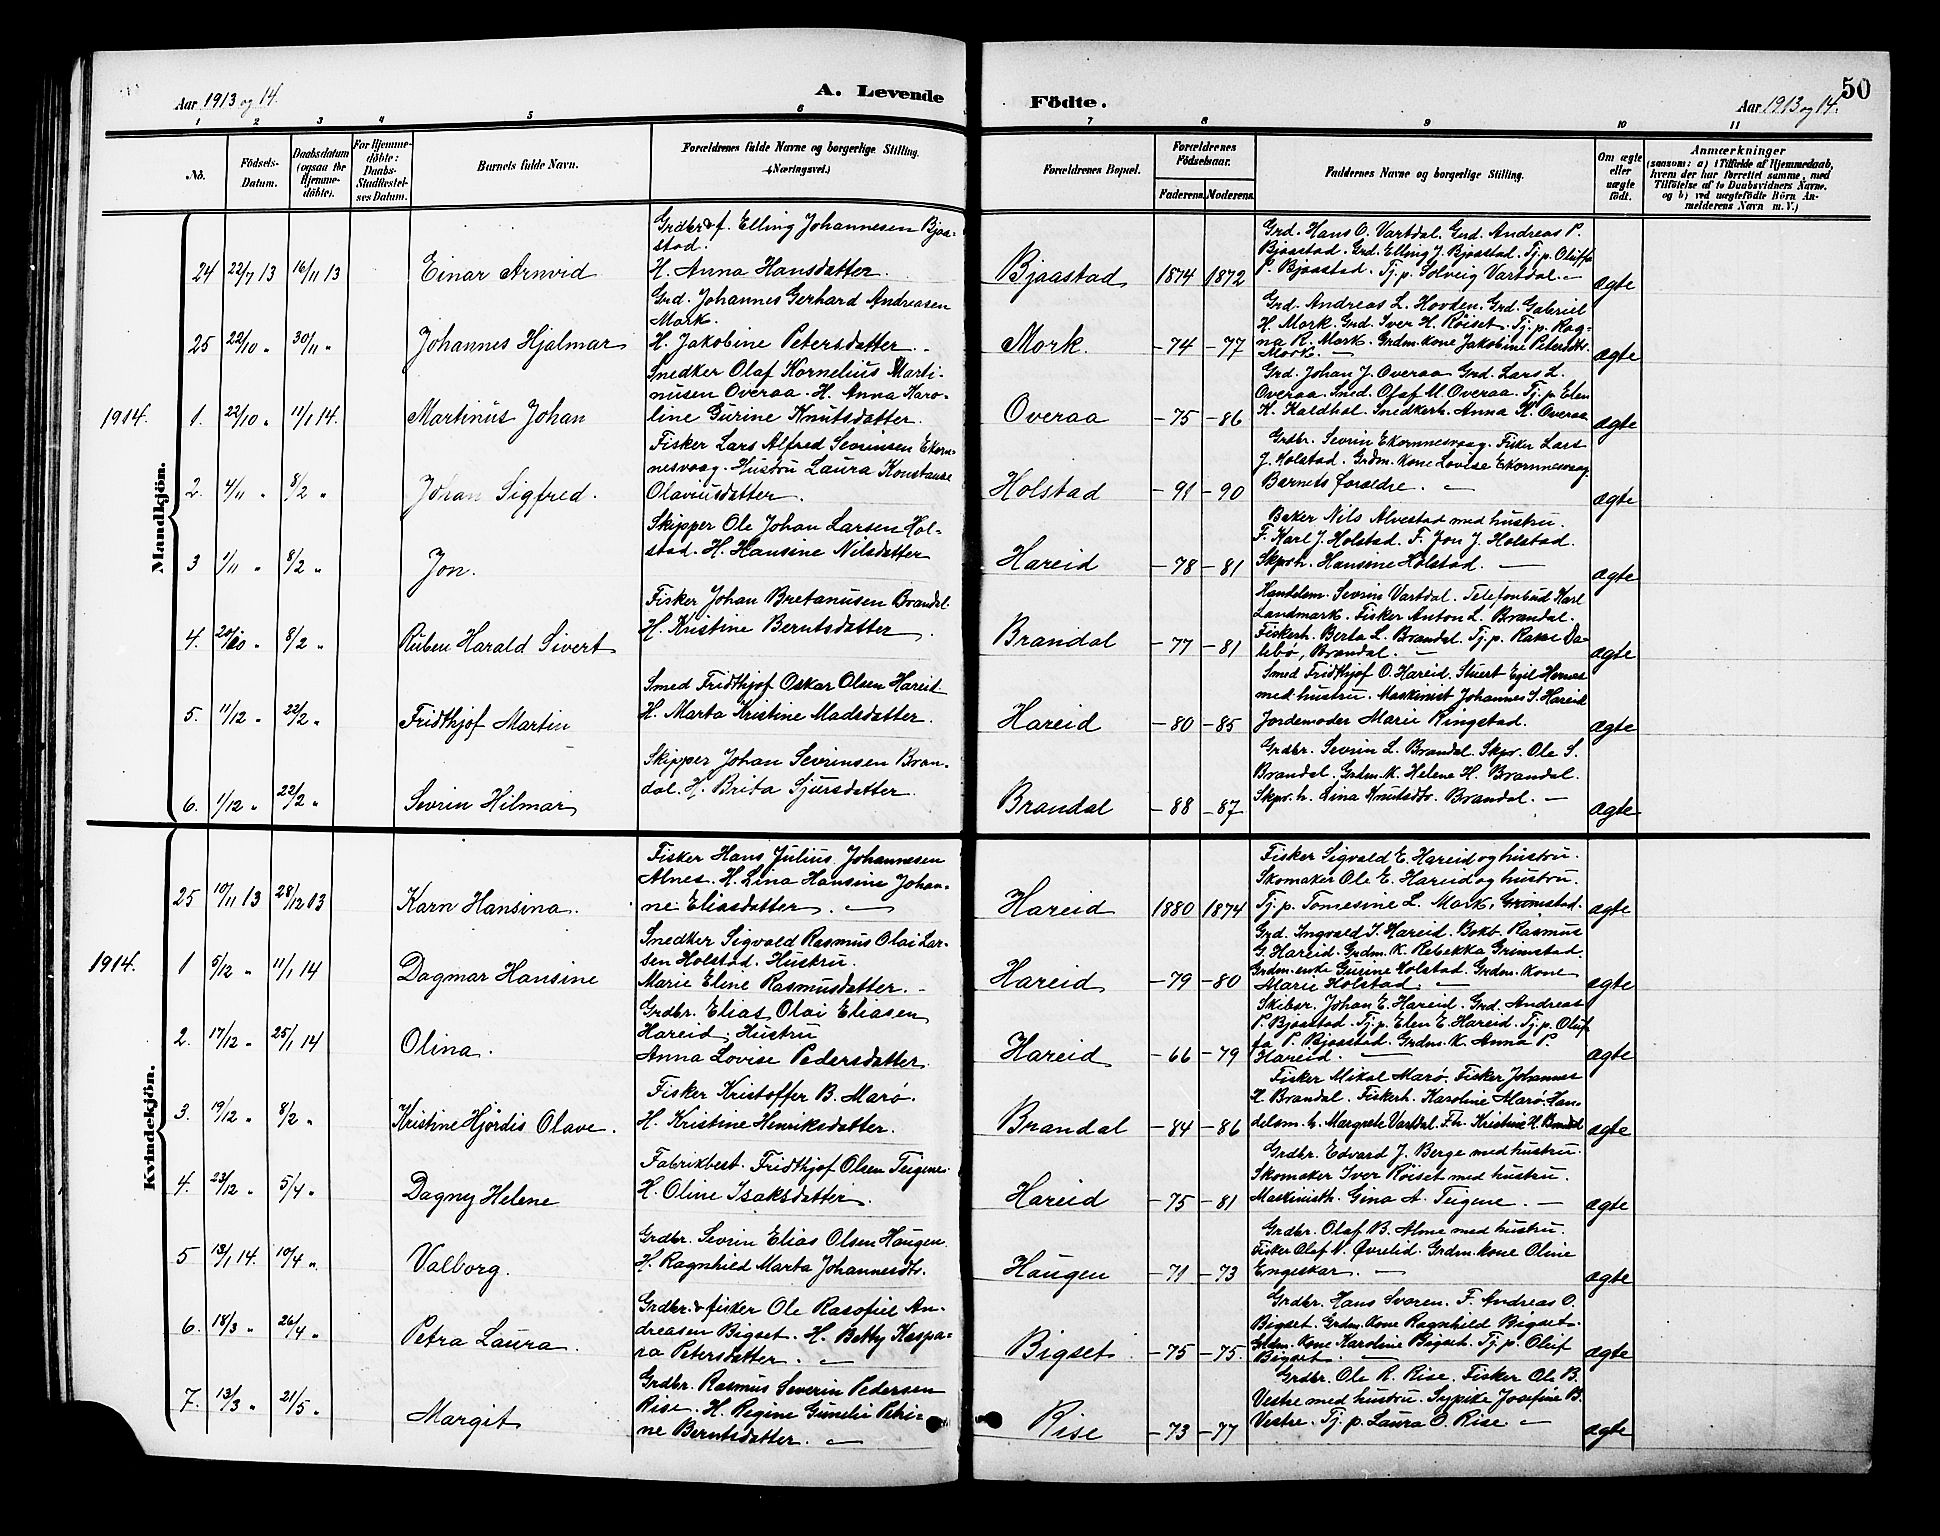 50
Aar 1913 og 14.
A. Levende Födte.
Aar 1913 og 14.
1 2 3 4 5 6 7 8 9 10 11
No.
Födsels-Datum.
Daabsdatum (ogsaa for Hjemmedöbte).
For Hjemmedöbte: Daabs-Stadfestelses Datum.
Barnets fulde Navn.
Forældrenes fulde Navne og borgerlige Stilling. (Næringsvei.)
Forældrenes Bopæl.
Forældrenes Födselsaar.
Faderens. Moderens.
Faddernes Navne og borgerlige Stilling.
Om ægte eller uægte födt.
Anmærkninger
(saasom: a) i Tilfælde af Hjemmedaab, hvem der har forrettet samme, med Tilföielse af to Daabsvidners Navne, og b) ved uægtefödte Börn Anmelderens Navn m. V.)
Mandkjön.
24 22/7 13 16/11 13 Einar Arnvid
Grdbr & f. Elling Johannesen Bjaa-
stad.
H. Anna Hansdatter.
Bjaastad 1874 1872
Grd. Hans O. Vartdal. Grd. Andreas P.
Bjaastad. Grd. Elling J. Bjaastad. Tj. p. Oluffa
P. Bjaastad. Tj. p. Solveig Vartdal. —
ægte
25 22/10 " 30/11 " Johannes Hjalmar
Grd. Johannes Gerhard Andreasen
Mork.
H. Jakobine Petersdatter
Mork. -74 -77
Grd. Andreas L. Hovden. Grd. Gabriel
H. Mork. Grd. Iver H. Röiset. Tj. p. Rag-
na R. Mork. Grdm. kone Jakobine Petersdtr.
Mork. —
ægte
1914. 1. 22/10 " 11/1 14. Martinus Johan
Snedker Olaf Kornelius Marti-
nusen Overaa. H. Anna Karo-
line Gurine Knutsdatter.
Overaa -75 -86
Grd. Johan J. Overaa Grd. Lars L.
Overaa. Sned. Olaf M. Overaa. Tj. p. Elen
K. Kaldhol. Snedkerh. Anna K. Overaa
ægte
2. 4/11 " 8/2 " Johan Sigfred.
Fisker Lars Alfred Sevrinsen Ekorn-
nesvaag. Hustru Laura Konstanse
Olaviusdatter.
Holstad -91 -90
Grdbr. Sevrin Ekornnesvaag. Fisker Lars
J. Holstad. Grdm. kone Lovise Ekornnesvaag
Barnets forældre. —
ægte
3 1/11 " 8/2 " Jon.
Skipper Ole Johan Larsen Hol-
stad. H. Hansine Nilsdatter
Hareid -78 -81
Baker Nils Alvestad med hustru.
F. Karl J. Holstad. F. Jon J. Holstad.
Skprh. Hansine Holstad. —
ægte
4. 20/10 " 8/2 " Ruben Harald Sivert
Fisker Johan Bretanusen Brandal.
H. Kristine Berntsdatter
Brandal -77 -81
Handelsm. Sevrin Vartdal. Telefonbud Karl
Landmark. Fisker Anton L. Brandal.
Fiskerh. Berta L. Brandal. Tj. p. Da-
lebø, Brandal. —
ægte
5. 11/12 " 22/2 " Fridthjof Martin
Smed Fridthjof Oskar Olsen Hareid
H. Marta Kristine Madsdatter.
Hareid -80 -85
Smed Fridthjof O. Hareid. Stuert Egil
med hustru. Maskinist Johannes S. Hareid
Jordemoder Marie Ringstad.
ægte
6. 1/12 " 22/2 " Sevrin Hilmar
Skipper Johan Sevrinsen Bran-
dal. H. Brita Sjursdatter.
Brandal -88 -87
Grdbr. Sevrin L. Brandal. Skpr. Ole S.
Brandal. Grdm. k. Helene H. Brandal.
Skpr. h. Lina Knutsdtr. Brandal. —
ægte
Kvindekjön.
25 10/11 13 28/12 13 Karn Hansina.
Fisker Hans Julius Johannesen
Alnes. H. Lina Hansine Johan-
ne Eliasdatter. —
Hareid 1880 1874
Fisker Sigvald E. Hareid og hustru.
Skomaker Ole E. Hareid og hustru.
Tj. p. Tomesine L. Mork, Grimstad.
ægte
1914. 1 5/12 " 11/1 14 Dagmar Hansine
Snedker Sigvald Rasmus Olai Lar-
sen Holstad. Hustru.
Marie Elene Rasmusdatter.
Hareid -79 -80
Grd. Ingvald I. Hareid. Bokb. Rasmus
G. Hareid. Grdm. K. Rebekka Grimstad.
Grdm. enke Gurine Holstad. Grdm. kone
Marie Holstad. —
ægte
2. 17/12 " 25/1 14 Olina.
Grdbr. Elias Olai Eliasen
Hareid. Hustru
Anna Lovise Pedersdatter
Hareid -66 -79
Skibsr. Johan E. Hareid. Grd. Andreas
P. Bjaastad. Tj. p. Elen E. Hareid. Tj. p. Oluf-
fa P. Bjaastad. Grdm. K. Anna P.
Hareid. —
ægte
3. 19/12 " 8/2 " Kristine Hjørdis Olave.
Fisker Kristoffer B. Marø.
H. Kristine Henriksdatter.
Brandal -84 -86
Fisker Mikal Marø. Fisker Johannes
H. Brandal. Fiskerh. Karoline Marø. Han-
delsm. h. Margrete Vartdal. Fh. Kristine H. Brandal
ægte
4. 23/12 " 5/4 " Dagny Helene
Fabrikbest. Fridthjof Olsen Teigene.
H. Oline Isaksdatter.
Hareid -75 -81
Grdbr. Edvard J. Berge med hustru.
Skomaker Iver Röiset med hustru.
Maskinisth. Gina A. Teigene. —
ægte
5 13/1 14. 10/4 " Valborg.
Grdbr. Sevrin Elias Olsen Haugen.
H. Ragnhild Marta Johannesdtr.
Haugen -71 -73
Grdbr. Olaf B. Alme med hustru.
Fisker Olaf N. Øvrelid. Grdm. kone Oline
Engeskar. —
ægte
6. 18/3 " 26/4 " Petra Laura.
Grdbr. & fisker Ole Rasofiel An-
dreasen Bigset. H. Betty Kaspa-
ra Petersdatter. —
Bigset. -75 -75.
Grdbr. Hans Svoren. F. Andreas O.
Bigset. Grdm. kone Ragnhild Bigset.
Grdm. kone Karoline Bigset. Tj. p. Oluf
Bigset. —
ægte
7. 13/3 " 21/5 " Margit
Grdbr. Rasmus Severin Pedersen
Rise. H. Regine Petri-
ne Berntsdatter. —
Rise -73 -77
Grdbr. Ole R. Rise. Fisker Ole B.
Vestre med hustru. Sypike Josefine B.
Vestre. Tj. p. Laura O. Rise —
ægte